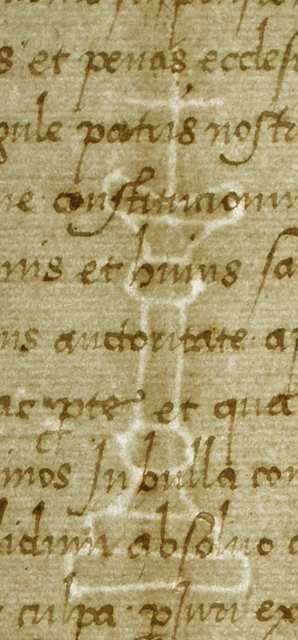 s et penas eccles
gule patris nostr
ne constitucionum
mis et huius sa
ns auctoritate ap
ac pter et qua
imos In bulla con
lidimi absoluo
culpa pluri ex